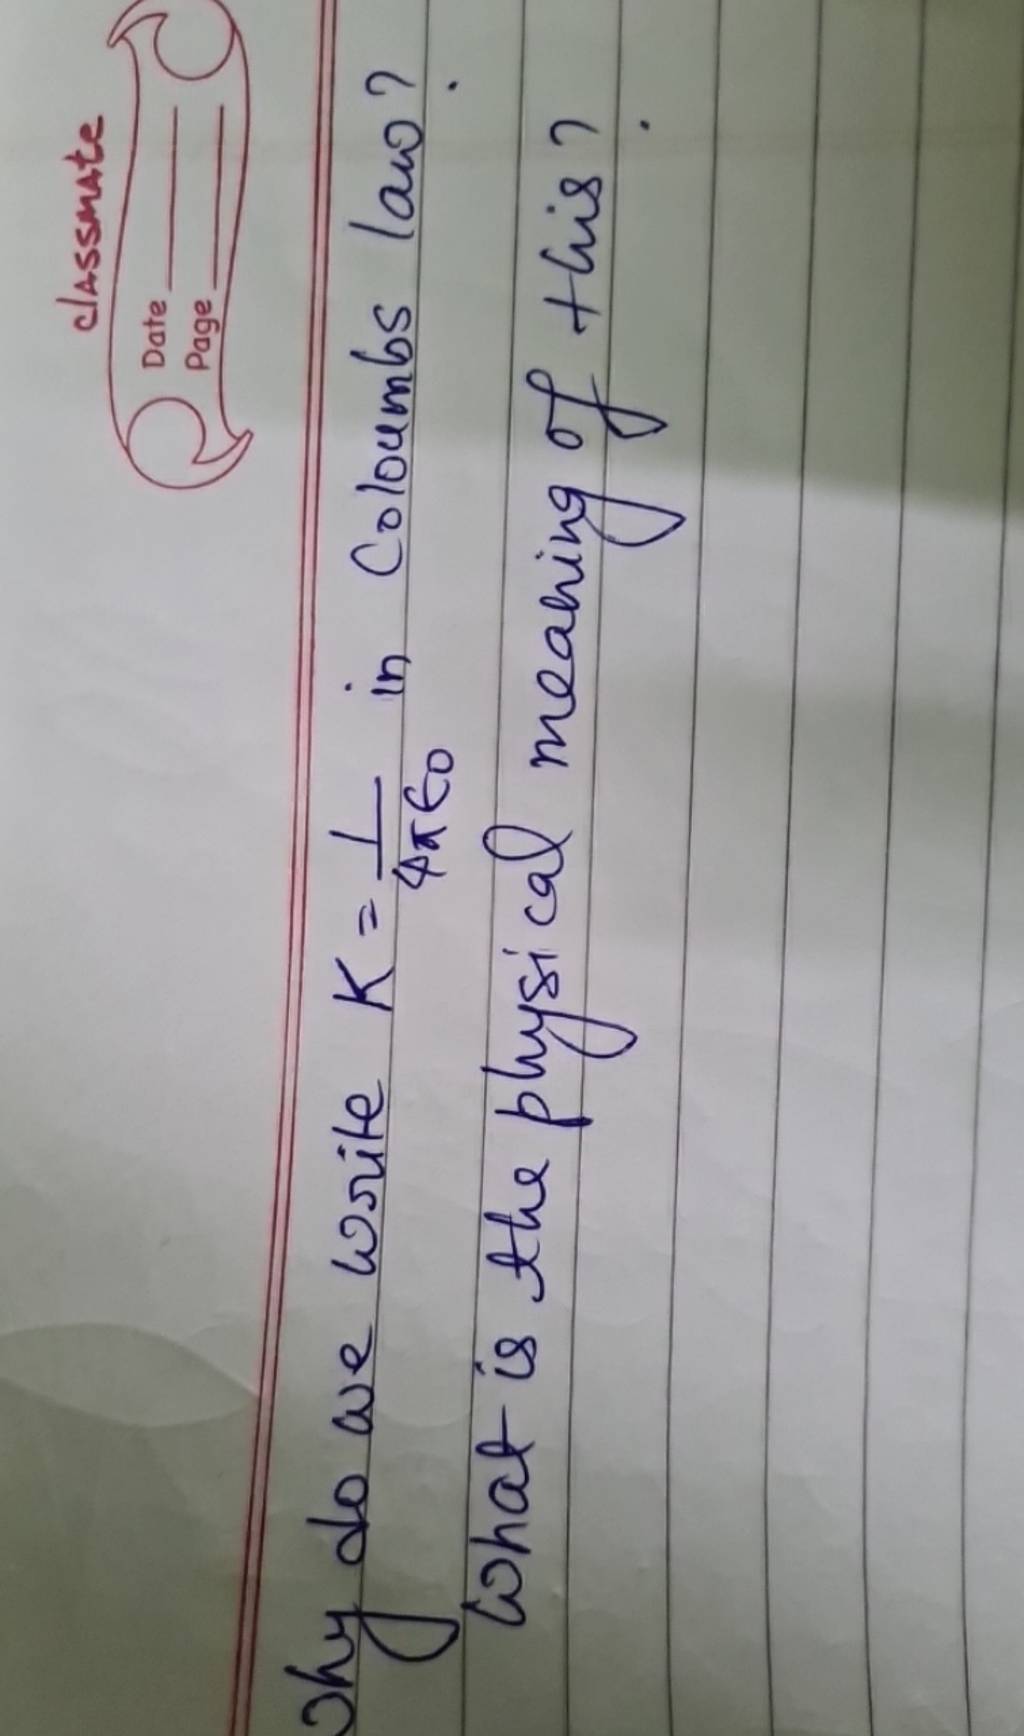 classmate
Date
Page
Why do we write K = 1/4πϵ0 in Coloumbs law?
What is the physical meaning of this?